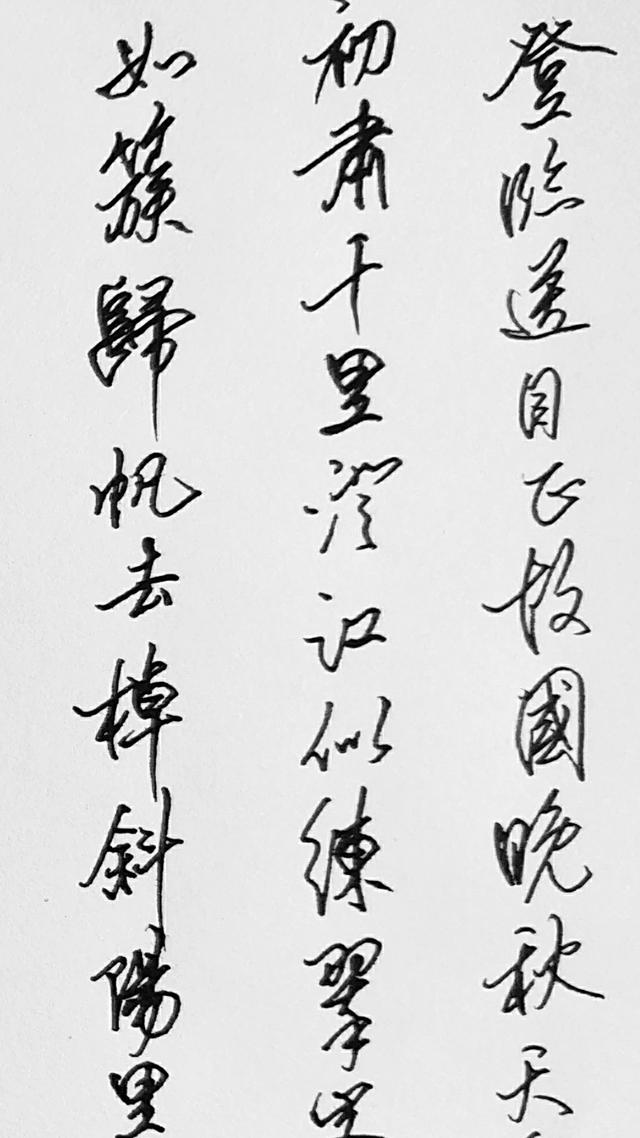 登臨送目正故國晚秋天
初肅千里澄江似練翠
如簇歸帆去棹斜陽里